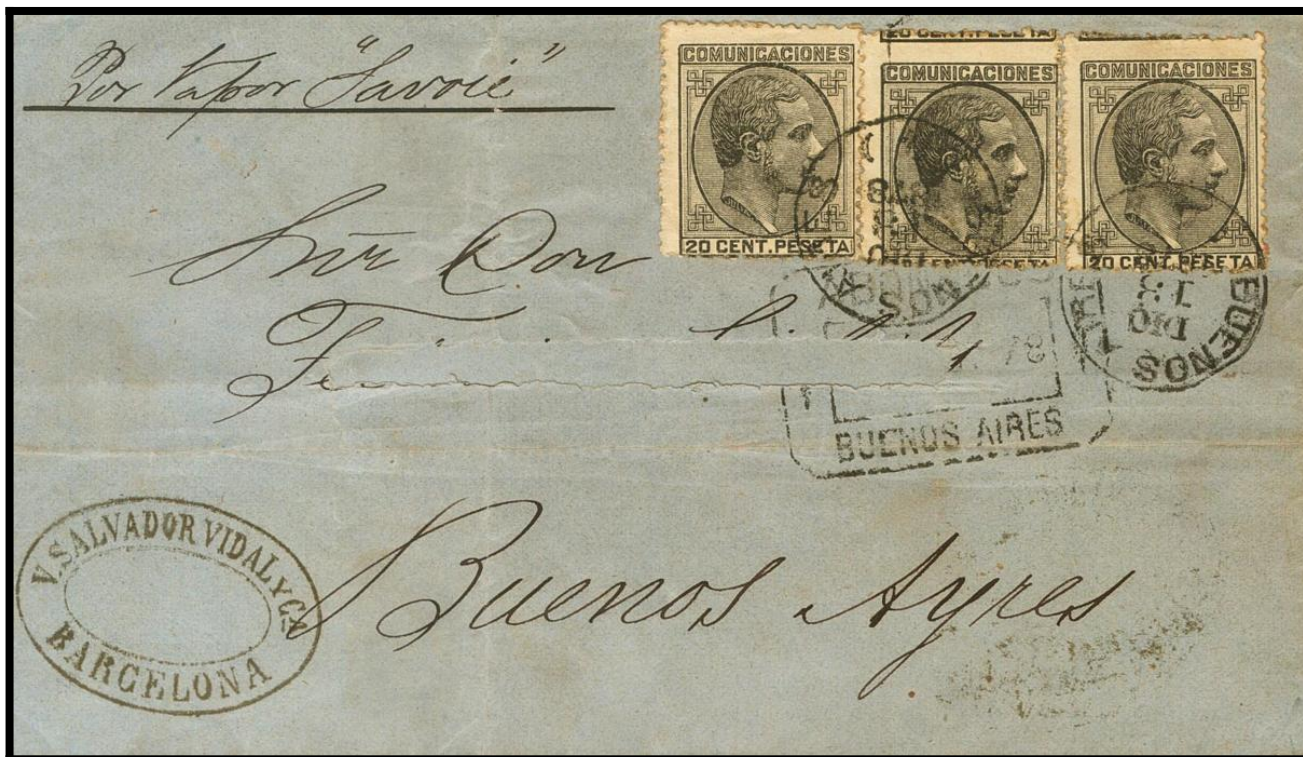 Por Vapor "Savoie"
COMUNICACIONES
20 CENT. PESETA
20 CENT. PESETA
COMUNICACIONES
CENT. PESETA
COMUNICACIONES
20 CENT. PESETA
Señr Don
78
BUENOS AIRES
BUENOS
DIC
BUENOS Ayres
V. SALVADOR VIDAL Y Cª
BARCELONA